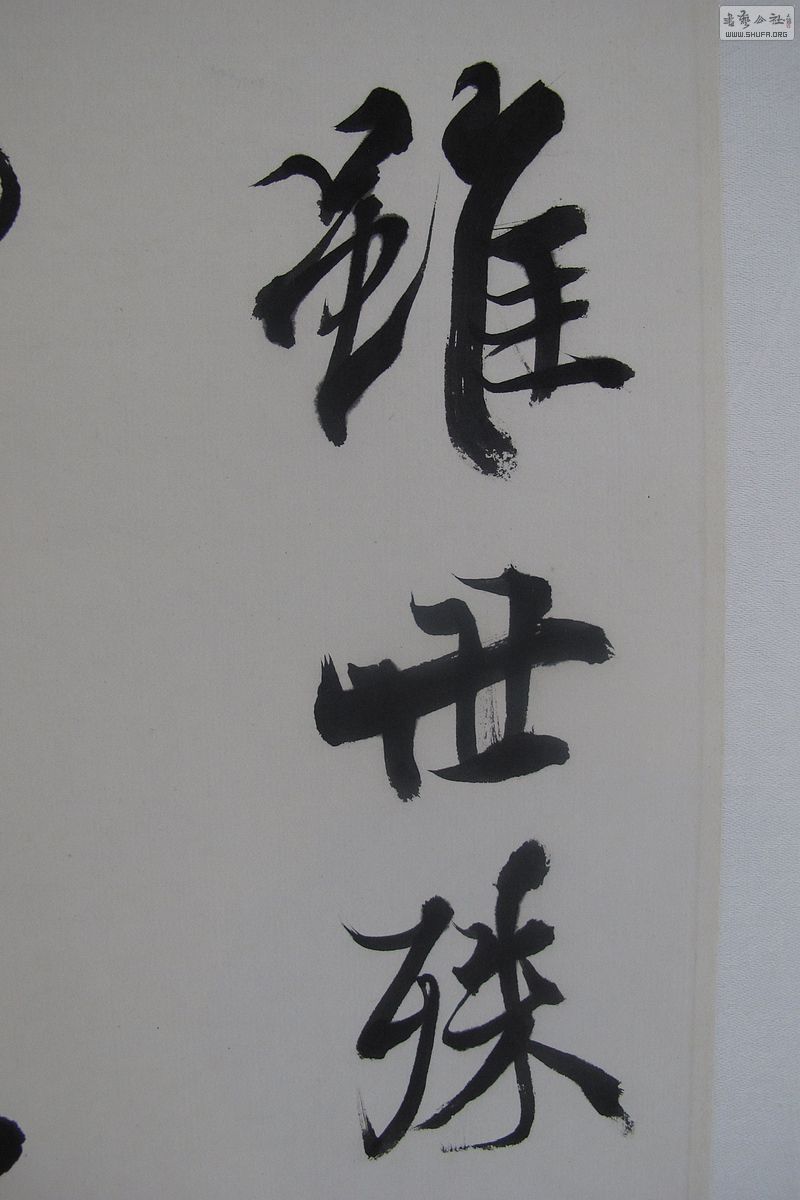 雖世殊
书艺公社
WWW.SHUFA.ORG